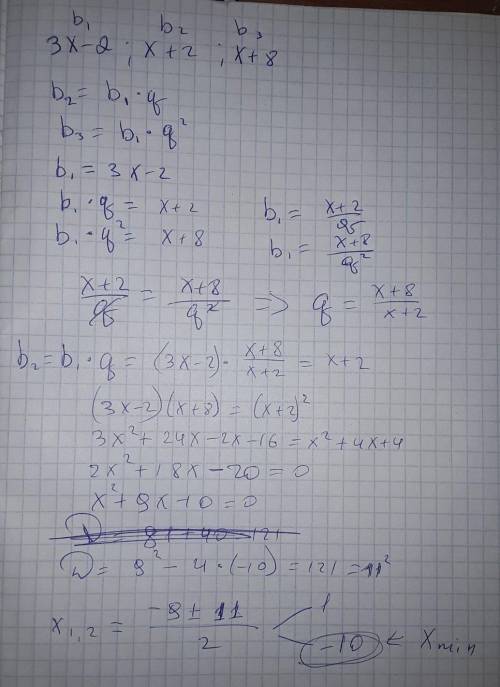 b₁ b₂ b₃
3x-2 ; x+2 ; x+8
b₂ = b₁·q
b₃ = b₁·q²
b₁ = 3x-2
b₁·q = x+2 b₁ = (x+2)/q
b₁·q² = x+8 b₁ = (x+8)/q²
(x+2)/q = (x+8)/q² => q = (x+8)/(x+2)
b₂ = b₁·q = (3x-2)·(x+8)/(x+2) = x+2
(3x-2)(x+8) = (x+2)²
3x²+24x-2x-16 = x²+4x+4
2x²+18x-20=0
x²+9x-10=0
D = 81+40 121
D = 9²-4·(-10) = 121 = 11²
x₁,₂ = (-9±11)/2 1
-10 ← Xmin